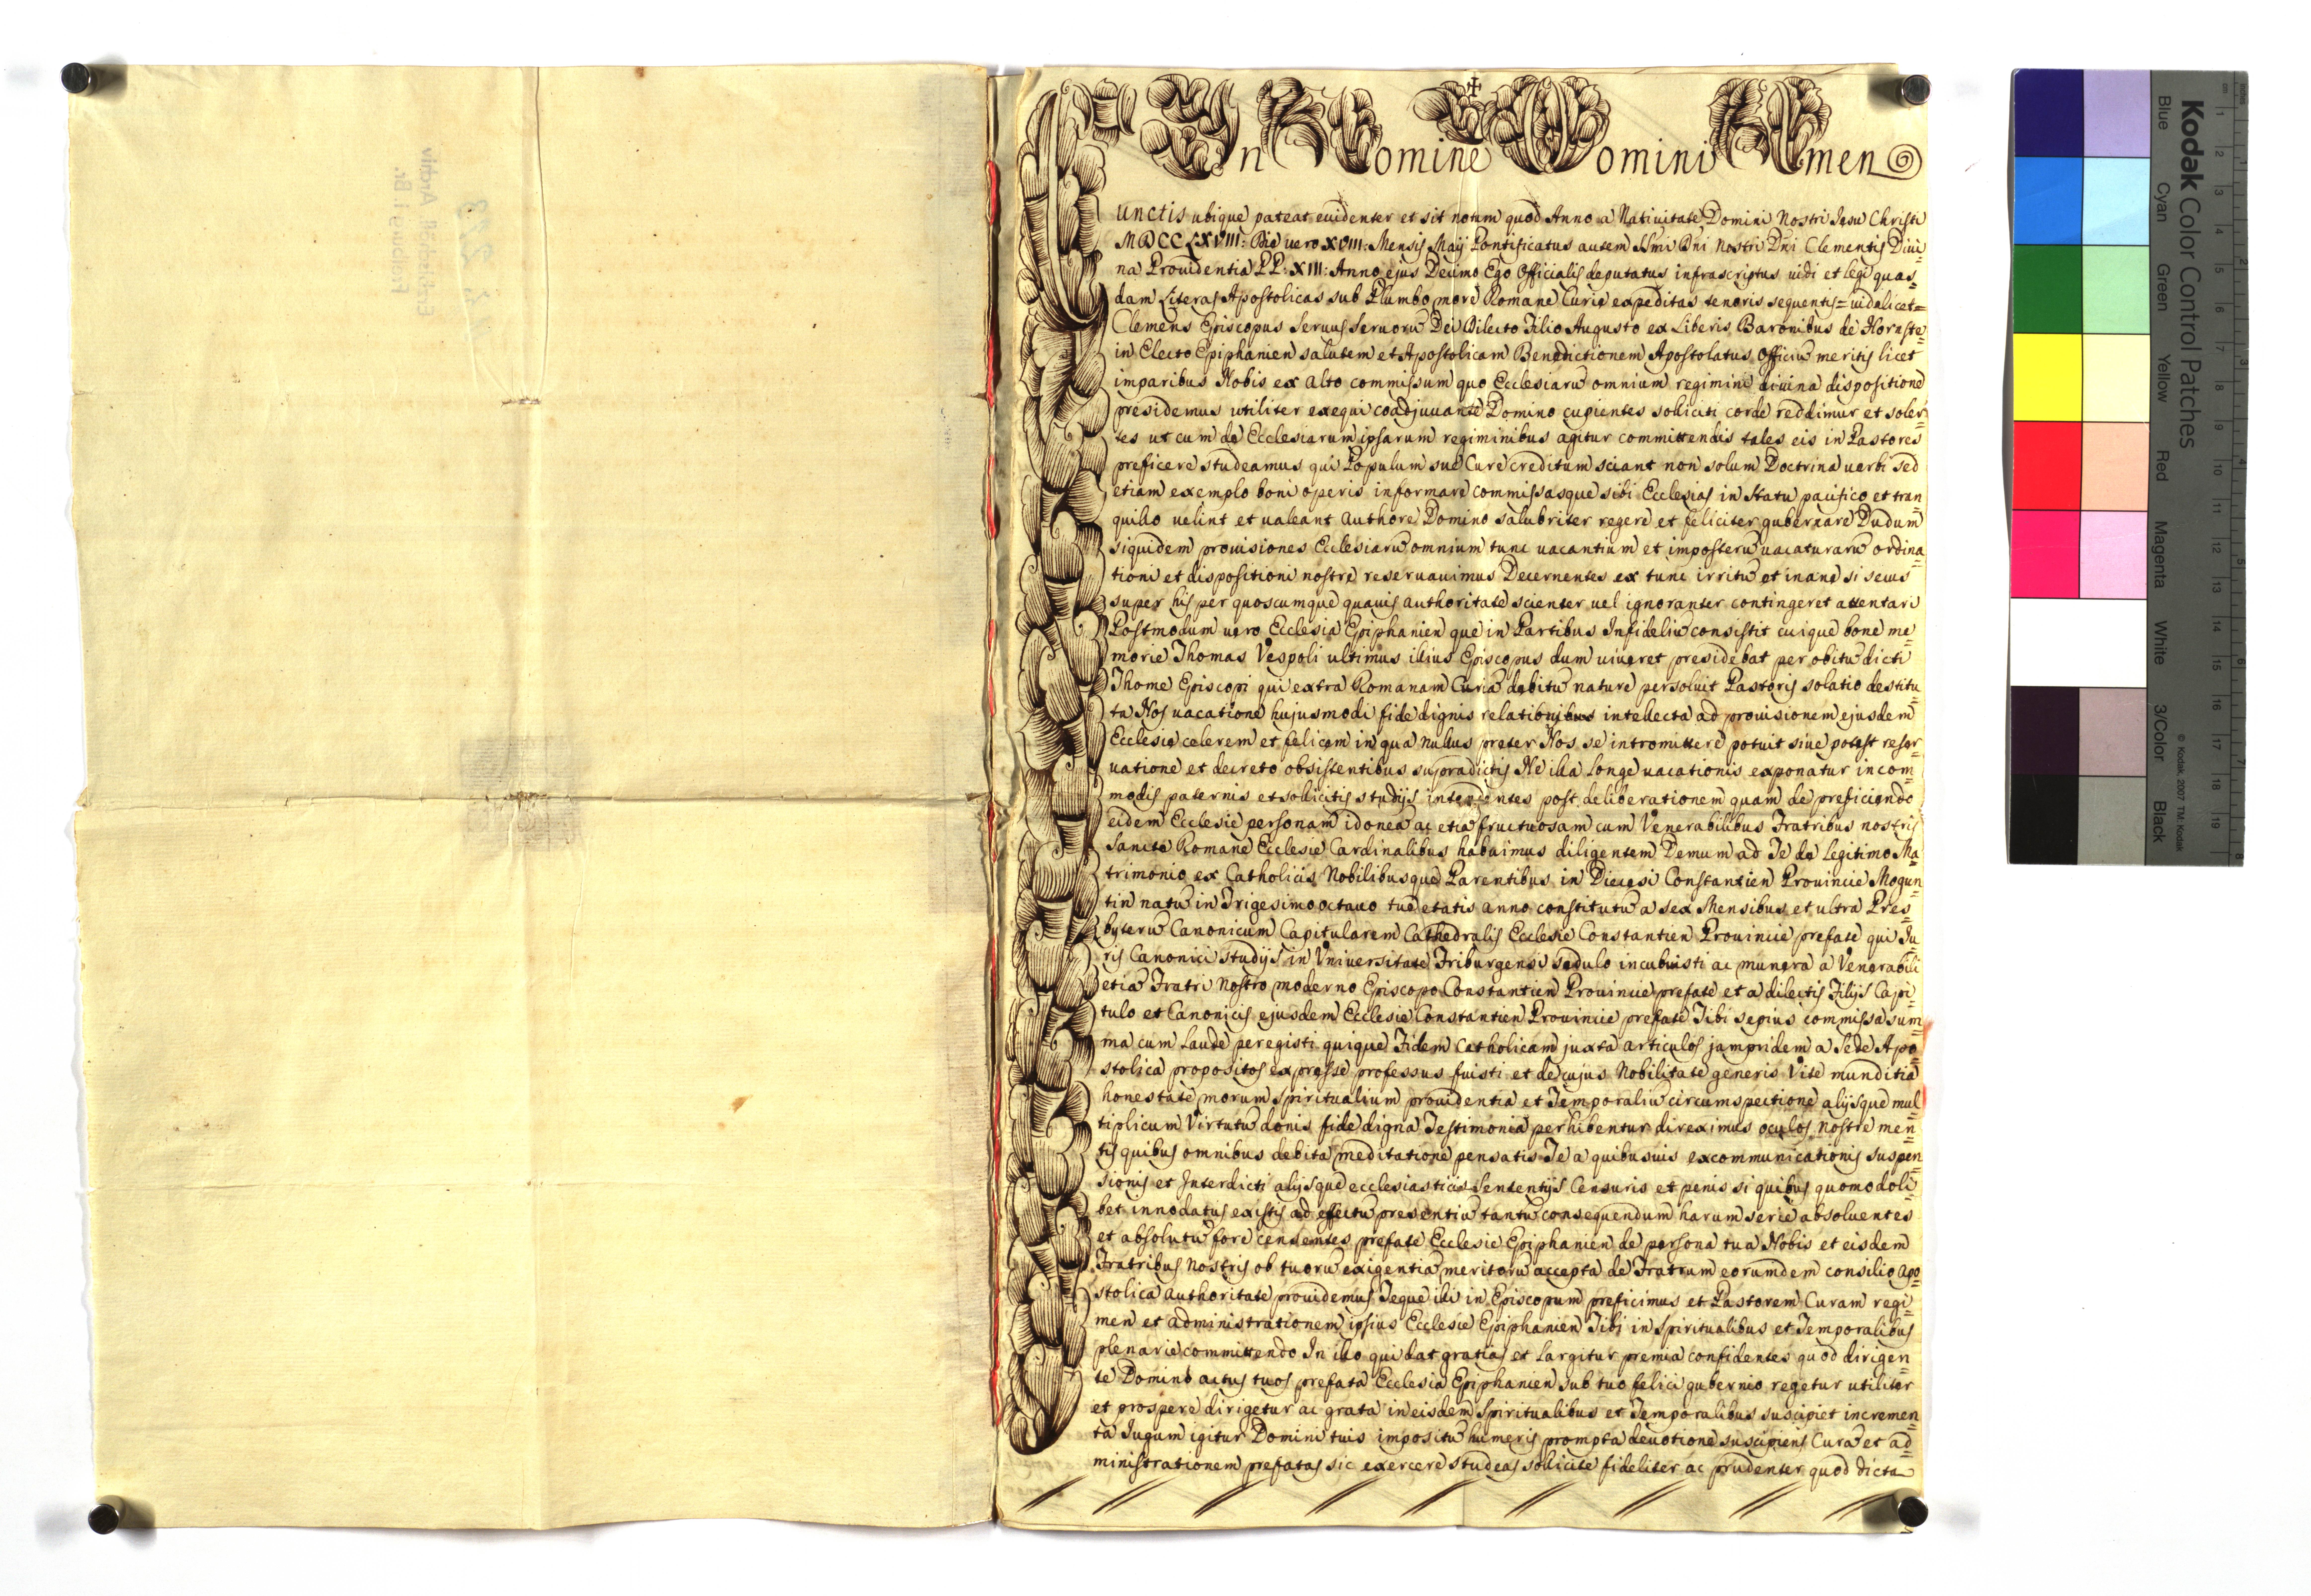 In Nomine Domini Amen
Cunctis ubique pateat euidenter et sit notum quod Anno a Natiuitate Domini Nostri Jesu Christi
MDCCLXVIII: Die uero XVIII: Mensis Maij Pontificatus autem SSmi Dni Nostri Dni Clementis Diui=
na Prouidentia PP: XIII: Anno ejus Decimo Ego Officialis deputatus infrascriptus uidi et legi quas=
dam Literas Apostolicas sub Plumbo more Romane Curie expeditas tenoris sequentis= uidelicet=
Clemens Episcopus Seruus Seruorũ Dei Dilecto Filio Augusto ex Liberis Baronibus de Hornste=
in Electo Epiphanien salutem et Apostolicam Benedictionem Apostolatus Officiũ meritis licet
imparibus Nobis ex alto commissum quo Ecclesiarũ omnium regimini diuina dispositione
presidemus utiliter exequi coadjuuante Domino cupientes solliciti corde reddimur et soler=
tes ut cum de Ecclesiarum ipsarum regiminibus agitur committendis tales eis in Pastores
preficere studeamus qui Populum sue Cure creditum sciant non solum Doctrina uerbi sed
etiam exemplo boni operis informare commissasque sibi Ecclesias in Statu pacifico et tran=
quillo uelint et ualeant authore Domino salubriter regere et feliciter gubernare Dudum
siquidem prouisiones Ecclesiarũ omnium tunc uacantium et imposterũ uacaturarũ ordina=
tioni et dispositioni nostre reseruauimus Decernentes ex tunc irritũ et inane si secus
super his per quoscumque quauis authoritate scienter uel ignoranter contingeret attentari
Postmodum uero Ecclesia Epiphanien que in Partibus Infideliũ consistit cuique bone me=
morie Thomas Vespoli ultimus illius Episcopus dum uiueret presidebat per obitũ dicti
Thome Episcopi qui extra Romanam Curiã debitũ nature persoluit Pastoris solatio destitu=
ta Nos uacatione hujusmodi fide dignis relationibus intellecta ad prouisionem ejusdem
Ecclesie celerem et felicem in qua nullus preter Nos se intromittere potuit siue potest reser=
uatione et decreto obsistentibus supradictis Ne illa longe uacationis exponatur incom=
modis paternis et sollicitis studijs intendentes post deliberationem quam de preficiendo
eidem Ecclesie personam idoneã ac etiã fructuosam cum Venerabilibus Fratribus nostris
Sancte Romane Ecclesie Cardinalibus habuimus diligentem Demum ad Te de legitimo Ma=
trimonio ex Catholicis Nobilibusque Parentibus in Diecesi Constantien Prouincie Mogun=
tin natũ in Trigesimo octauo tue etatis anno constitutũ a sex Mensibus et ultra Pres=
byterũ Canonicum Capitularem Cathedralis Ecclesie Constantien Prouincie prefate qui Ju=
ris Canonici studijs in Vniuersitate Friburgensi sedulo incubuisti ac munera a Venerabili
etiã Fratri Nostro moderno Episcopo Constantien Prouincie prefate et a dilectis Filijs Capi=
tulo et Canonicis ejusdem Ecclesie Constantien Prouincie prefate Tibi sepius commissa sum=
ma cum laude peregisti quique Fidem Catholicam juxta articulos jampridem a Sede Apo=
stolica propositos expresse professus fuisti et de cujus Nobilitate generis Vite munditia
honestate morum Spiritualium prouidentia et Temporaliũ circumspectione alijsque mul=
tiplicum Virtutũ donis fide digna Testimonia perhibentur direximus oculos nostre men=
tis quibus omnibus debita meditatione pensatis Te a quibusuis excommunicationis suspen=
sionis et Interdicti alijsque ecclesiasticis Sententijs Censuris et penis si quibus quomodoli=
bet innodatus existis ad effectũ presentiũ tantũ consequendum harum serie absoluentes
et absolutũ fore censentes prefate Ecclesie Epiphanien de persona tua Nobis et eisdem
Fratribus Nostris ob tuorũ exigentiã meritorũ accepta de Fratrum eorumdem consilio apo=
stolica authoritate prouidemus Teque illi in Episcopum preficimus et Pastorem Curam regi=
men et administrationem ipsius Ecclesie Epiphanien Tibi in Spiritualibus et Temporalibus
plenarie committendo In illo qui dat gratias et largitur premia confidentes quod dirigen=
te Domino actus tuos prefata Ecclesia Epiphanien sub tuo felici gubernio regetur utiliter
et prospere dirigetur ac grata in eisdem Spiritualibus et Temporalibus suscipiet incremen=
ta Jugum igitur Domini tuis impositũ humeris prompta deuotione suscipiens Curã et ad=
ministrationem prefatas sic exercere studeas sollicite fideliter ac prudenter quod dicta
Kodak Color Control Patches
Blue
Cyan
Green
Yellow
Red
Magenta
White
3/Color
Black
© Kodak, 2007 TM: Kodak
Erzbischöfl. Archiv
Freiburg i. Br.